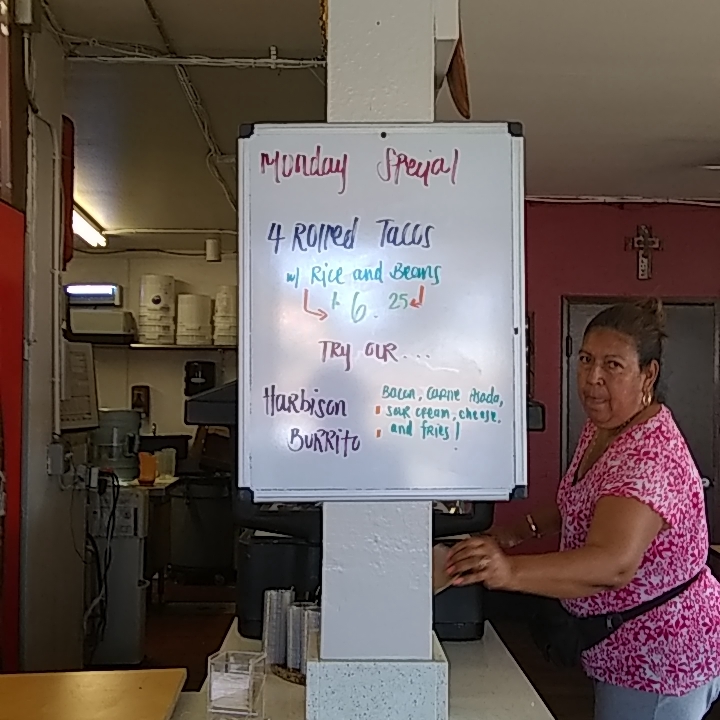 Monday Special
4 Rolled Tacos
w/ Rice and Beans
$6.25
TRY OUR...
HARBISON
BURRITO
Bacon, Carne Asada,
sour cream, cheese,
and fries!